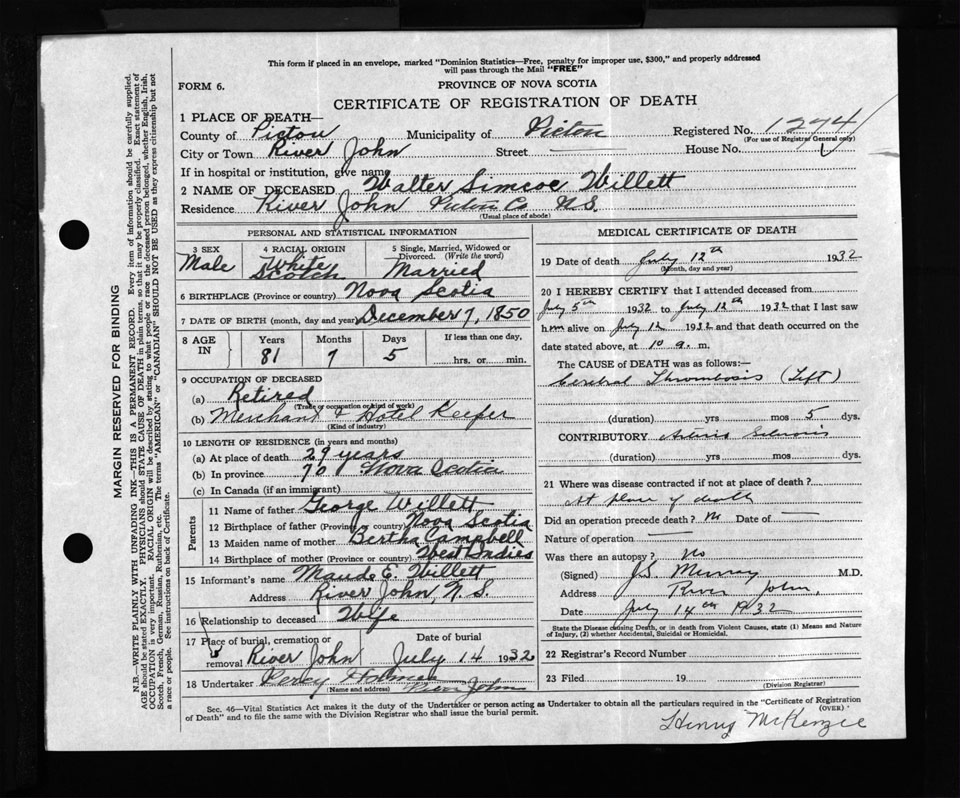 This form if placed in an envelope, marked "Dominion Statistics—Free, penalty for improper use, $300," and properly addressed
will pass through the Mail "FREE"
FORM 6.
PROVINCE OF NOVA SCOTIA
CERTIFICATE OF REGISTRATION OF DEATH
1 PLACE OF DEATH—
County of Pictou Municipality of Pictou Registered No. 1274
(For use of Registrar General only)
City or Town River John Street House No.
If in hospital or institution, give name
2 NAME OF DECEASED Walter Simcoe Willett
Residence River John Pictou Co N.S.
(Usual place of abode)
PERSONAL AND STATISTICAL INFORMATION
3 SEX 4 RACIAL ORIGIN 5 Single, Married, Widowed or
Divorced. (Write the word)
Male White Married
Scotch
6 BIRTHPLACE (Province or country) Nova Scotia
7 DATE OF BIRTH (month, day and year) December 7, 1850
8 AGE IN Years Months Days If less than one day,
81 7 5 hrs. or min.
9 OCCUPATION OF DECEASED
(a) Retired
(Trade or occupation or kind of work)
(b) Merchant & Hotel Keefer
(Kind of industry)
10 LENGTH OF RESIDENCE (in years and months)
(a) At place of death 29 years
(b) In province 70 Nova Scotia
(c) In Canada (if an immigrant)
Parents
11 Name of father George Willett
12 Birthplace of father (Province or country) Nova Scotia
13 Maiden name of mother Bertha Campbell
14 Birthplace of mother (Province or country) West Indies
15 Informant's name Maude E. Willett
Address River John, N.S.
16 Relationship to deceased Wife
17 Place of burial, cremation or Date of burial
removal River John July 14 1932
18 Undertaker Percy River John
(Name and address)
MEDICAL CERTIFICATE OF DEATH
19 Date of death July 12th 1932
(Month, day and year)
20 I HEREBY CERTIFY that I attended deceased from
July 5th 1932 to July 12th 1932 that I last saw
him alive on July 12 1932 and that death occurred on the
date stated above, at 10 a. m.
The CAUSE of DEATH was as follows:—
Cerebral Thrombosis (Left)
(duration) yrs mos 5 dys.
CONTRIBUTORY
(duration) yrs mos dys.
21 Where was disease contracted if not at place of death?
At place of death
Did an operation precede death? No Date of —
Nature of operation —
Was there an autopsy? No
(Signed) J.S. Murray M.D.
Address River John,
Date July 14th 1932
State the Disease causing Death, or in death from Violent Causes, state (1) Means and Nature
of Injury, (2) whether Accidental, Suicidal or Homicidal.
22 Registrar's Record Number
23 Filed 19
(Division Registrar)
Sec. 46—Vital Statistics Act makes it the duty of the Undertaker or person acting as Undertaker to obtain all the particulars required in the "Certificate of Registration
of Death" and to file the same with the Division Registrar who shall issue the burial permit.
(OVER)
Henry McKenzie
MARGIN RESERVED FOR BINDING
N.B.—WRITE PLAINLY WITH UNFADING INK—THIS IS A PERMANENT RECORD. Every item of information should be carefully supplied.
AGE should be stated EXACTLY. PHYSICIANS should STATE CAUSE OF DEATH in plain terms, so that it may be properly classified. Exact statement of
OCCUPATION is very important. RACIAL ORIGIN will be described by stating to what people or race the deceased person belonged, whether English, Irish,
Scotch, French, German, Russian, Ruthenian, etc. The terms "AMERICAN" or "CANADIAN" SHOULD NOT BE USED as they express citizenship but not
a race or people. See instructions on back of Certificate.